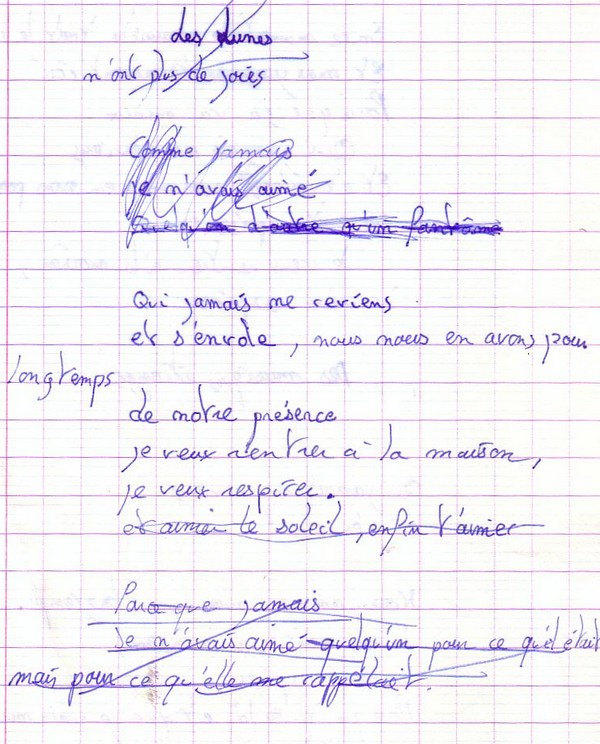 des dunes
n'ont plus de joies
Comme jamais
je n'avais aimé
Quelqu'un d'autre qu'un fantôme
Qui jamais ne reviens
et s'envole, nous nous en avons pour
longtemps
de notre présence
je veux rentrer à la maison,
je veux respirer.
et aimer le soleil, enfin t'aimer
Parce que jamais
Je n'avais aimé quelqu'un pour ce qu'il était
mais pour ce qu'elle me rappelait.